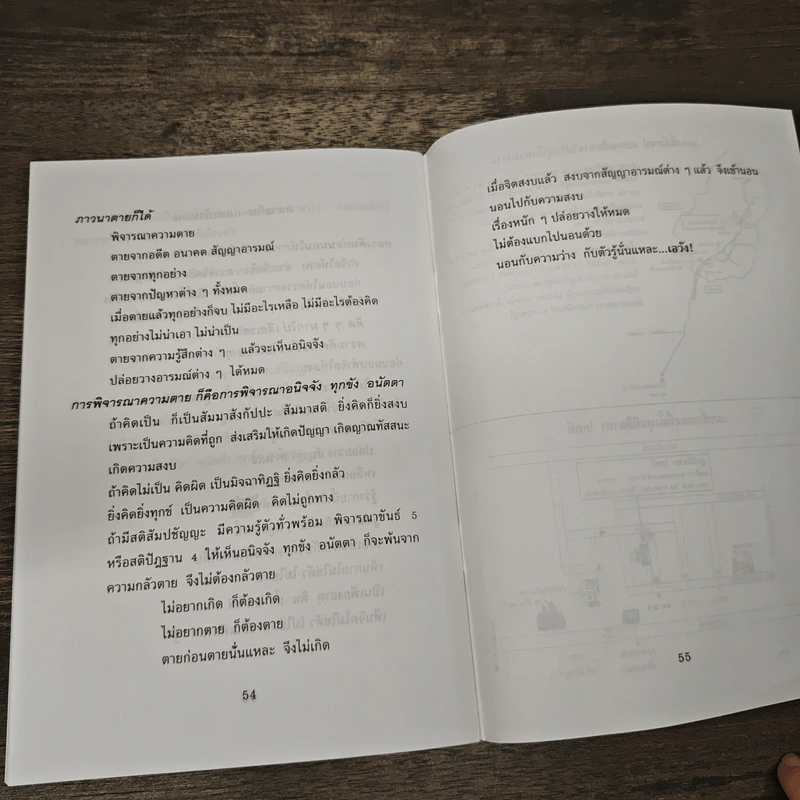 ภาวนาตายก็ได้
พิจารณาความตาย
ตายจากอดีต อนาคต สัญญาอารมณ์
ตายจากทุกอย่าง
ตายจากปัญหาต่าง ๆ ทั้งหมด
เมื่อตายแล้วทุกอย่างก็จบ ไม่มีอะไรเหลือ ไม่มีอะไรต้องคิด
ทุกอย่างไม่น่าเอา ไม่น่าเป็น
ตายจากความรู้สึกต่าง ๆ แล้วจะเห็นอนิจจัง
ปล่อยวางอารมณ์ต่าง ๆ ได้หมด
การพิจารณาความตาย ก็คือการพิจารณาอนิจจัง ทุกขัง อนัตตา
ถ้าคิดเป็น ก็เป็นสัมมาสังกัปปะ สัมมาสติ ยิ่งคิดก็ยิ่งสงบ
เพราะเป็นความคิดที่ถูก ส่งเสริมให้เกิดปัญญา เกิดญาณทัสสนะ
เกิดความสงบ
ถ้าคิดไม่เป็น คิดผิด เป็นมิจฉาทิฏฐิ ยิ่งคิดยิ่งกลัว
ยิ่งคิดยิ่งทุกข์ เป็นความคิดผิด คิดไม่ถูกทาง
ถ้ามีสติสัมปชัญญะ มีความรู้ตัวทั่วพร้อม พิจารณาขันธ์ 5
หรือสติปัฏฐาน 4 ให้เห็นอนิจจัง ทุกขัง อนัตตา ก็จะพ้นจาก
ความกลัวตาย จึงไม่ต้องกลัวตาย
ไม่อยากเกิด ก็ต้องเกิด
ไม่อยากตาย ก็ต้องตาย
ตายก่อนตายนั่นแหละ จึงไม่เกิด
54
เมื่อจิตสงบแล้ว สงบจากสัญญาอารมณ์ต่าง ๆ แล้ว จึงเข้านอน
นอนไปกับความสงบ
เรื่องหนัก ๆ ปล่อยวางให้หมด
ไม่ต้องแบกไปนอนด้วย
นอนกับความว่าง กับตัวรู้นั่นแหละ...เอวัง!
55